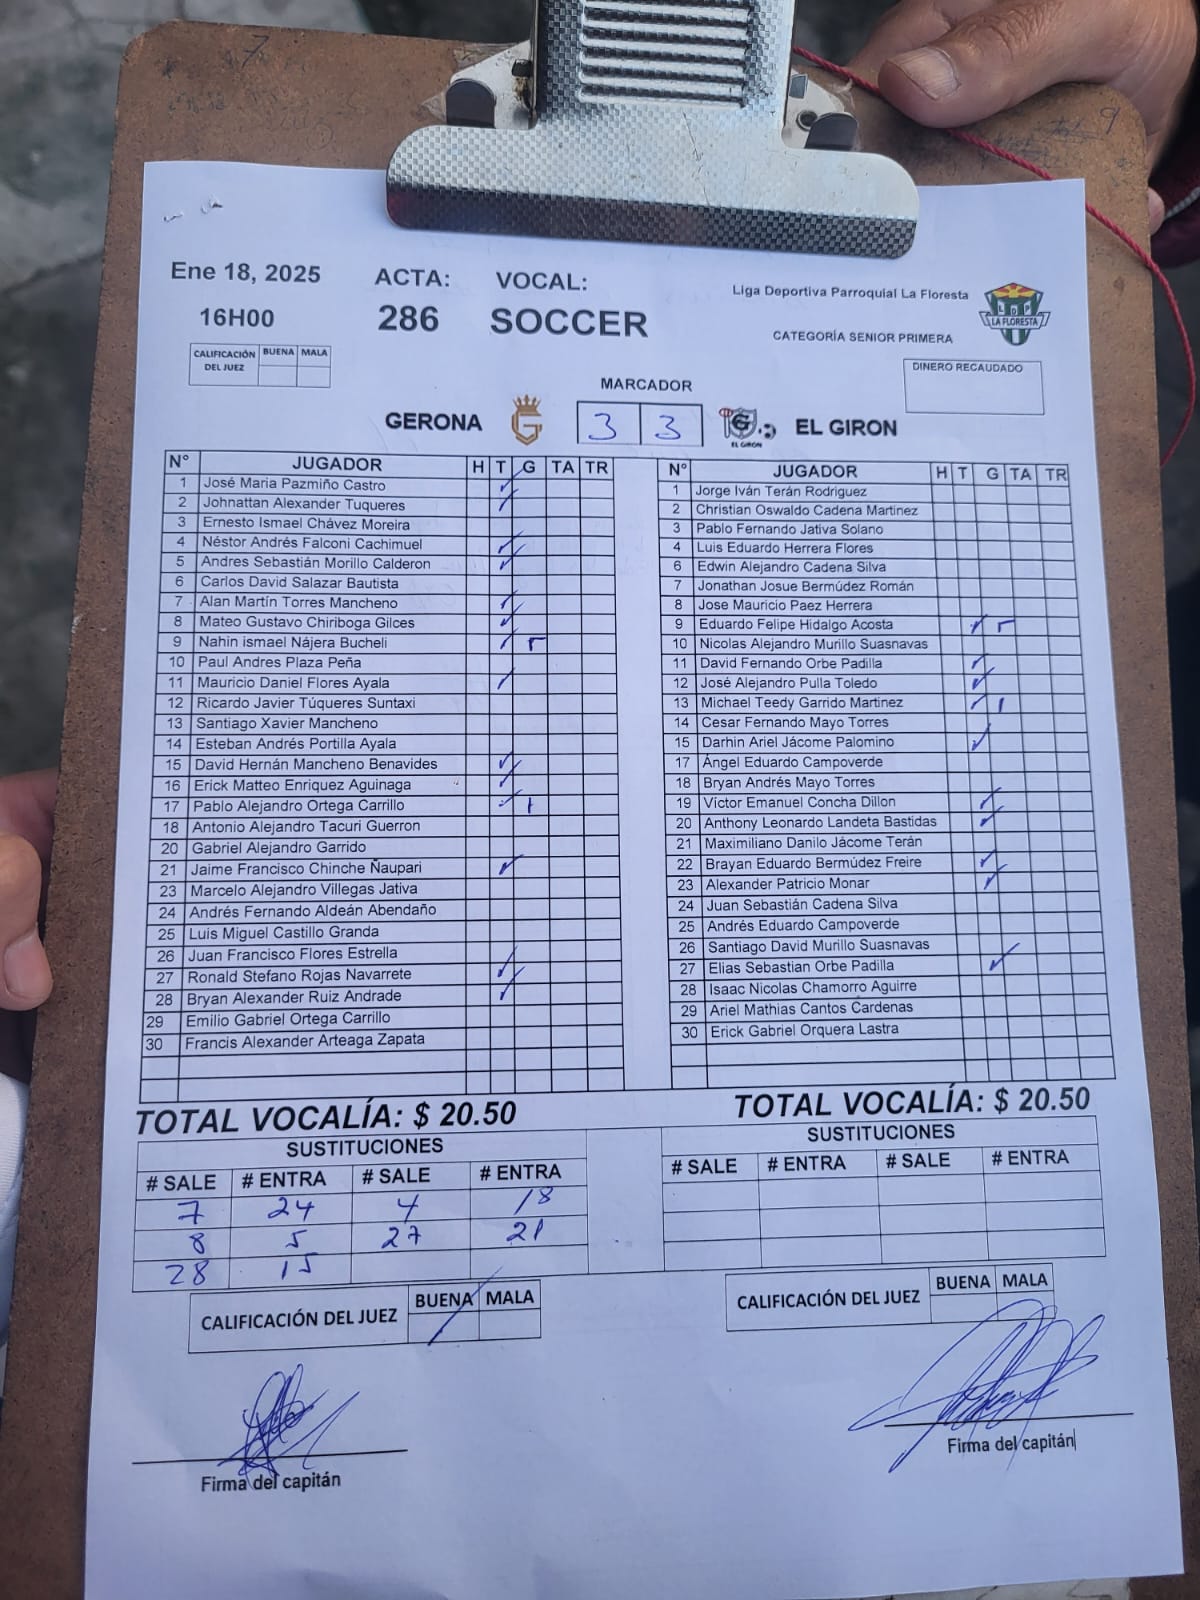 Ene 18, 2025 ACTA: VOCAL:
16H00 286 SOCCER
Liga Deportiva Parroquial La Floresta
LDP
LA FLORESTA
CATEGORÍA SENIOR PRIMERA
CALIFICACIÓN DEL JUEZ BUENA MALA
DINERO RECAUDADO
MARCADOR
GERONA G 3 3 G EL GIRON EL GIRON
N° JUGADOR H T G TA TR
1 José Maria Pazmiño Castro ✓
2 Johnattan Alexander Tuqueres ✓
3 Ernesto Ismael Chávez Moreira
4 Néstor Andrés Falconi Cachimuel ✓
5 Andres Sebastián Morillo Calderon ✓
6 Carlos David Salazar Bautista
7 Alan Martín Torres Mancheno ✓
8 Mateo Gustavo Chiriboga Gilces ✓
9 Nahin ismael Nájera Bucheli ✓
10 Paul Andres Plaza Peña
11 Mauricio Daniel Flores Ayala ✓
12 Ricardo Javier Túqueres Suntaxi
13 Santiago Xavier Mancheno
14 Esteban Andrés Portilla Ayala
15 David Hernán Mancheno Benavides ✓
16 Erick Matteo Enriquez Aguinaga ✓
17 Pablo Alejandro Ortega Carrillo ✓ I
18 Antonio Alejandro Tacuri Guerron
20 Gabriel Alejandro Garrido
21 Jaime Francisco Chinche Ñaupari ✓
23 Marcelo Alejandro Villegas Jativa
24 Andrés Fernando Aldeán Abendaño
25 Luis Miguel Castillo Granda
26 Juan Francisco Flores Estrella
27 Ronald Stefano Rojas Navarrete ✓
28 Bryan Alexander Ruiz Andrade ✓
29 Emilio Gabriel Ortega Carrillo
30 Francis Alexander Arteaga Zapata
TOTAL VOCALÍA: $ 20.50
SUSTITUCIONES
# SALE # ENTRA # SALE # ENTRA
7 24 4 18
8 5 27 21
28 15
CALIFICACIÓN DEL JUEZ BUENA MALA
Firma del capitán
N° JUGADOR H T G TA TR
1 Jorge Iván Terán Rodriguez
2 Christian Oswaldo Cadena Martinez
3 Pablo Fernando Jativa Solano
4 Luis Eduardo Herrera Flores
6 Edwin Alejandro Cadena Silva
7 Jonathan Josue Bermúdez Román
8 Jose Mauricio Paez Herrera
9 Eduardo Felipe Hidalgo Acosta ✓
10 Nicolas Alejandro Murillo Suasnavas
11 David Fernando Orbe Padilla ✓
12 José Alejandro Pulla Toledo ✓
13 Michael Teedy Garrido Martinez ✓ I
14 Cesar Fernando Mayo Torres
15 Darhin Ariel Jácome Palomino ✓
17 Ángel Eduardo Campoverde
18 Bryan Andrés Mayo Torres
19 Víctor Emanuel Concha Dillon ✓
20 Anthony Leonardo Landeta Bastidas ✓
21 Maximiliano Danilo Jácome Terán
22 Brayan Eduardo Bermúdez Freire ✓
23 Alexander Patricio Monar ✓
24 Juan Sebastián Cadena Silva
25 Andrés Eduardo Campoverde
26 Santiago David Murillo Suasnavas
27 Elias Sebastian Orbe Padilla ✓
28 Isaac Nicolas Chamorro Aguirre
29 Ariel Mathias Cantos Cardenas
30 Erick Gabriel Orquera Lastra
TOTAL VOCALÍA: $ 20.50
SUSTITUCIONES
# SALE # ENTRA # SALE # ENTRA
CALIFICACIÓN DEL JUEZ BUENA MALA
Firma del capitán